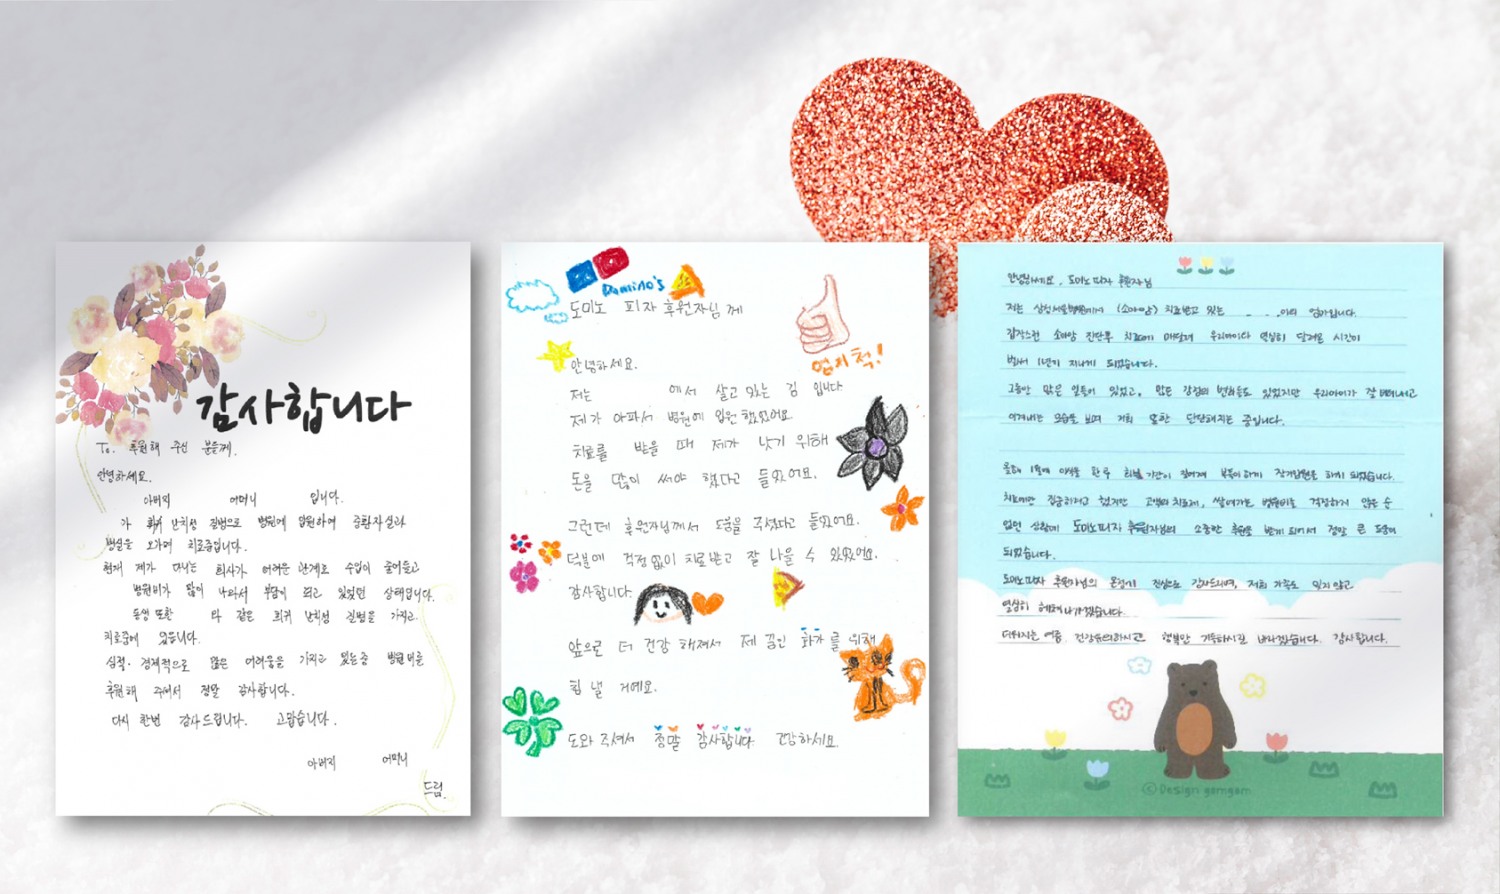 감사합니다
To. 후원해 주신 분들께.
안녕하세요.
아버지 어머니 입니다.
가 희귀 난치성 질병으로 병원에 입원하여 중환자실과
병실을 오가며 치료중입니다.
현재 제가 다니는 회사가 어려운 관계로 수입이 줄어들고
병원비가 많이 나와서 부담이 되고 있었던 상태입니다.
동생 또한 타 같은 희귀 난치성 질병을 가지고
치료중에 있습니다.
심적·경제적으로 많은 어려움을 가지고 있는중 병원비를
후원해 주셔서 정말 감사합니다.
다시 한번 감사드립니다. 고맙습니다.
아버지 어머니
드림.
Domino's
도미노 피자 후원자님께
엄지척!
안녕하세요.
저는 에서 살고 있는 김 입니다
제가 아파서 병원에 입원 했었어요.
치료를 받을 때 제가 낫기 위해
돈을 많이 써야 했다고 들었어요.
그런데 후원자님께서 도움을 주셨다고 들었어요.
덕분에 걱정 없이 치료받고 잘 나을 수 있었어요.
감사합니다.
앞으로 더 건강 해져서 제 꿈인 화가를 위해
힘 낼 거예요.
도와 주셔서 정말 감사합니다 건강하세요.
안녕하세요, 도미노피자 후원자님
저는 삼성서울병원에서 (소아암) 치료받고 있는 아이 엄마입니다.
갑작스런 소아암 진단후 치료에 매달려 우리아이와 열심히 달려온 시간이
벌써 1년이 지나게 되었습니다.
그동안 많은 일들이 있었고, 많은 감정의 변화들도 있었지만 우리아이가 잘 버텨내고
이겨내는 모습을 보며 저희 또한 단단해지는 중입니다.
올해 1월에 이식을 한 후 회복 기간이 길어져 부득이하게 장기입원을 하게 되었습니다.
치료에만 집중하려고 했지만 고액의 치료제, 쌓여가는 병원비를 걱정하지 않을 수
없던 상황에 도미노피자 후원자님의 소중한 후원을 받게 되어서 정말 큰 도움이
되었습니다.
도미노피자 후원자님의 온정에 진심으로 감사드리며, 저희 가족도 잊지 않고
열심히 헤쳐나가겠습니다.
더워지는 여름 건강유의하시고 행복만 가득하시길 바라겠습니다. 감사합니다.
©Design gomgom